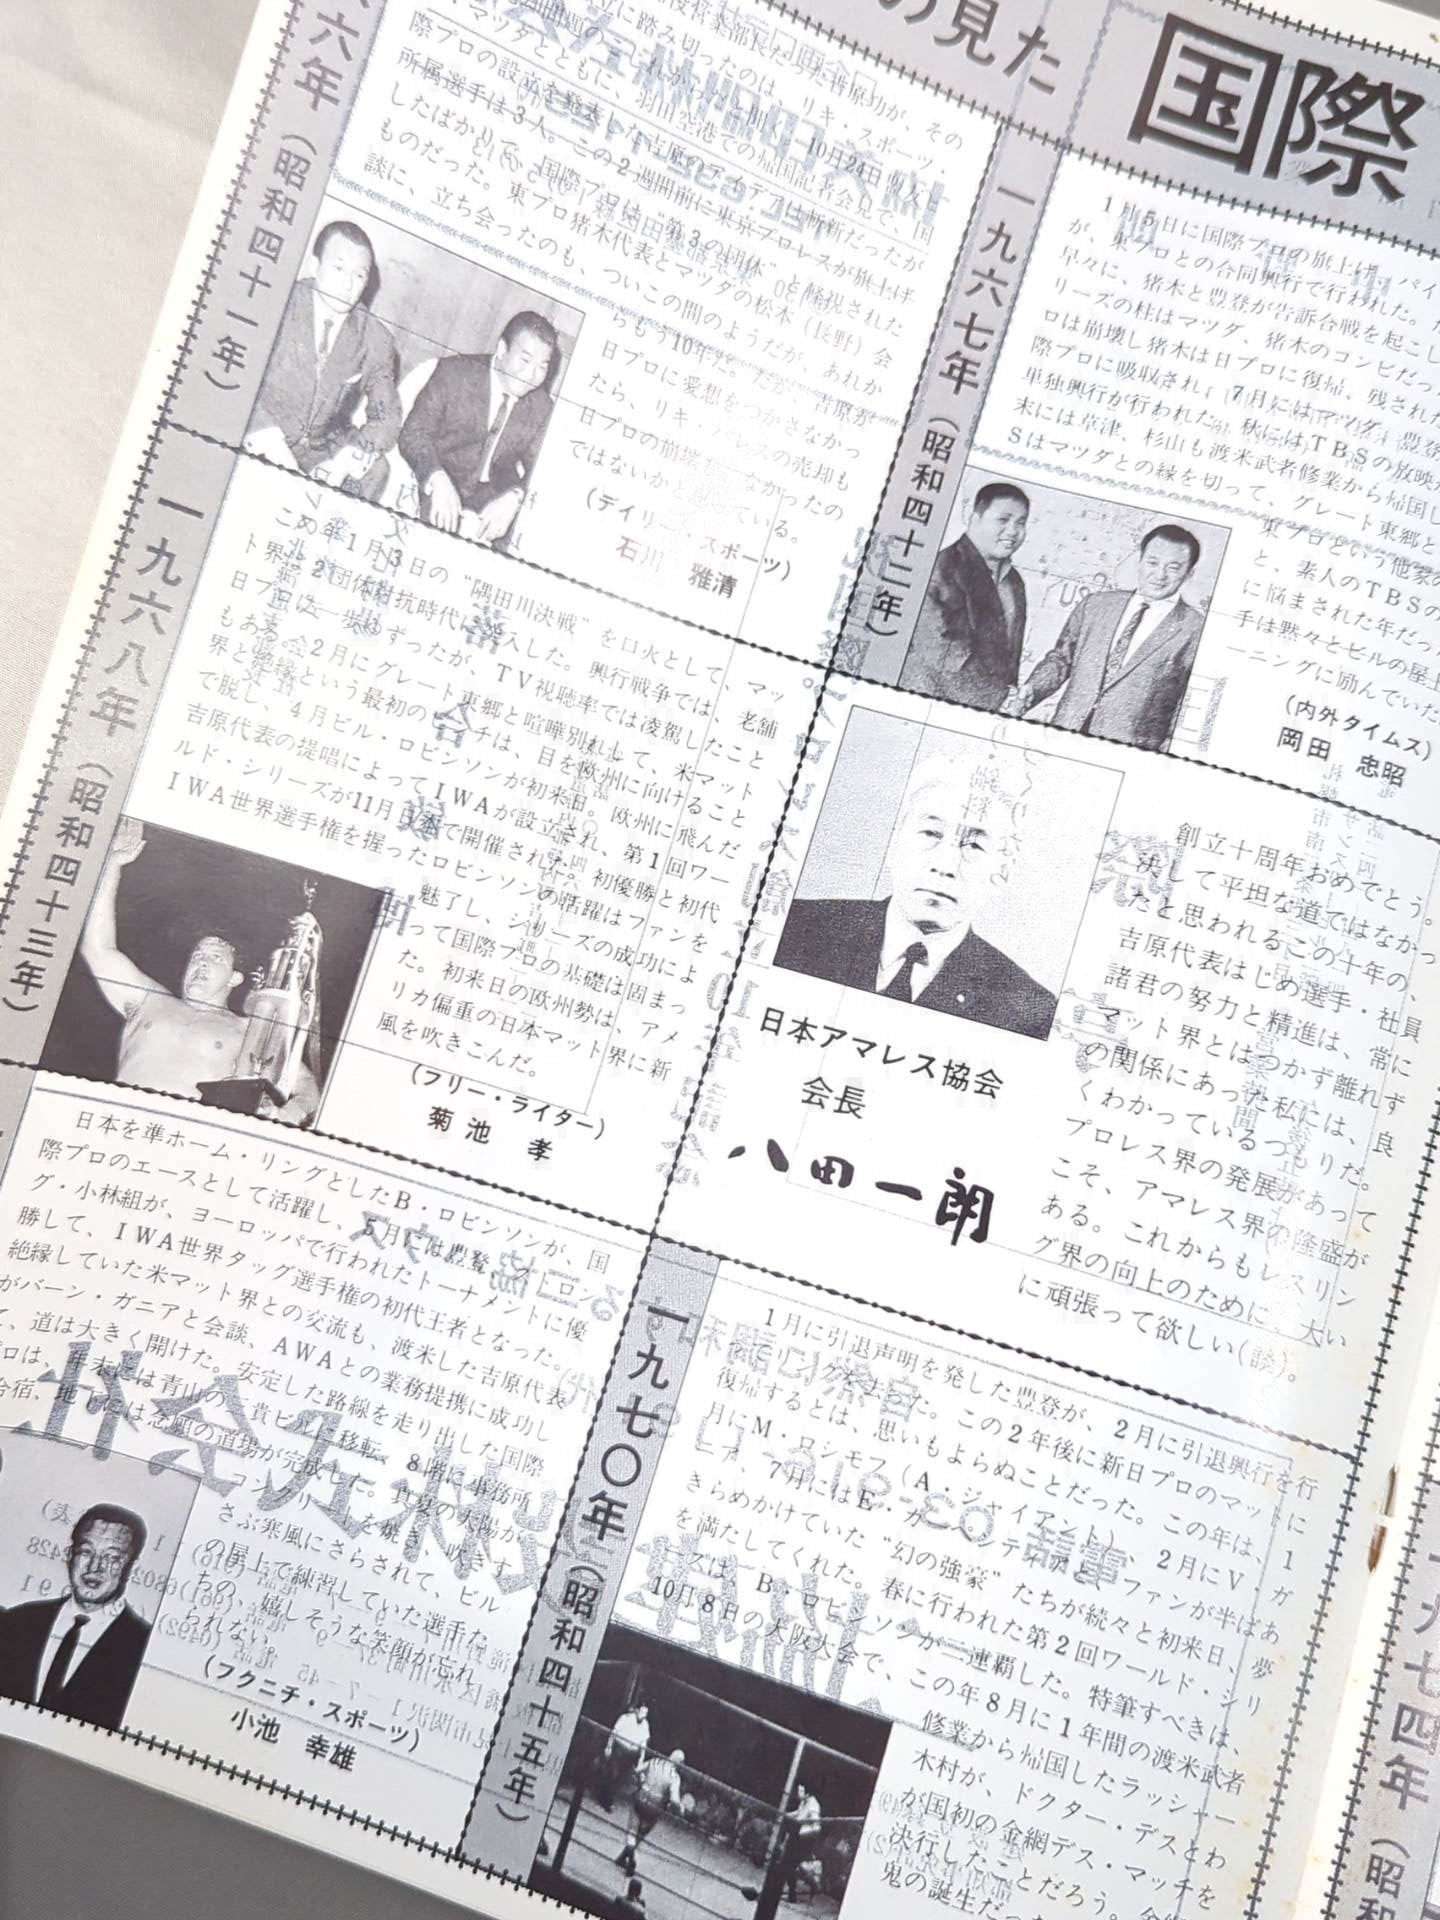 の見た
国際
六年（昭和四十一年）
立に踏み切ったのは、リキ・スポーツ・
マツダとともに、羽田空港での帰国記者会見で、国
際プロの設立を発表した吉原のアイデアは斬新だったが
所属選手は3人。この2週間前に東京プロレスが旗上げ
したばかりで、国際プロは“第3の団体”と軽視された
ものだった。東プロ猪木代表とマツダの松本（長野）会
談に、立ち会ったのも、ついこの間のようだが、あれか
らもう10年だ。だが、吉原が
日プロに愛想をつかさなかっ
たら、リキ・パレスの売却も
日プロの崩壊もなかったの
ではないかと思っている。
（デイリー・スポーツ）
石川　雅清
一九六七年（昭和四十二年）
1月5日に国際プロの旗上げ、パイ
が、東プロとの合同興行で行われた。
早々に、猪木と豊登が告訴合戦を起こし
リーズの柱はマツダ、猪木のコンビだっ
ロは崩壊し猪木は日プロに復帰、残された
際プロに吸収され、7月にはマツダ、豊登
単独興行が行われた。秋にはTBSの放映
末には草津、杉山も渡米武者修業から帰国し
Sはマツダとの縁を切って、グレート東郷と
東プロという他家の
と、素人のTBSの
に悩まされた年だっ
手は黙々とビルの屋上
ーニングに励んでいた
（内外タイムス）
岡田　忠昭
一九六八年（昭和四十三年）
この年1月3日の“隅田川決戦”を口火として、マッ
ト界は2団体対抗時代に突入した。興行戦争では、老舗
日プロに一歩ゆずったが、TV視聴率では凌駕したこと
もある。2月にグレート東郷と喧嘩別れして、米マット
界と絶縁という最初のピンチは、目を欧州に向けること
で脱し、4月ビル・ロビンソンが初来日。欧州に飛んだ
吉原代表の提唱によってIWAが設立され、第1回ワー
ルド・シリーズが11月日本で開催された。初優勝と初代
IWA世界選手権を握ったロビンソンの活躍はファンを
魅了し、シリーズの成功によ
って国際プロの基礎は固まっ
た。初来日の欧州勢は、アメ
リカ偏重の日本マット界に新
風を吹きこんだ。
（フリー・ライター）
菊池　孝
創立十周年おめでとう。
決して平坦な道ではなかっ
たと思われるこの十年の、
吉原代表はじめ選手・社員
諸君の努力と精進は、常に
マット界とはつかず離れず
の関係にあった私には、良
くわかっているつもりだ。
プロレス界の発展があって
こそ、アマレス界の隆盛が
ある。これからもレスリン
グ界の向上のために、大い
に頑張って欲しい（談）。
日本アマレス協会
会長
八田一朗
日本を準ホーム・リングとしたB・ロビンソンが、国
際プロのエースとして活躍し、5月には豊登、ストロン
グ・小林組が、ヨーロッパで行われたトーナメントに優
勝して、IWA世界タッグ選手権の初代王者となった。
絶縁していた米マット界との交流も、渡米した吉原代表
がバーン・ガニアと会談、AWAとの業務提携に成功し
て、道は大きく開けた。安定した路線を走り出した国際
プロは、年末には青山の三貴ビルに移転、8階に事務所
合宿、地下には念願の道場が完成した。真夏の太陽が
コンクリートを焼き、吹きす
さぶ寒風にさらされて、ビル
の屋上で練習していた選手た
ちの、嬉しそうな笑顔が忘れ
られない。
（フクニチ・スポーツ）
小池　幸雄
一九七〇年（昭和四十五年）
1月に引退声明を発した豊登が、2月に引退興行を行
ってリングを去った。この2年後に新日プロのマットに
復帰するとは、思いもよらぬことだった。この年は、1
月にM・ロシモフ（A・ジャイアント）、2月にV・ガ
ニア、7月にはE・カーペンティアと、ファンが半ばあ
きらめかけていた“幻の強豪”たちが続々と初来日、夢
を満たしてくれた。春に行われた第2回ワールド・シリ
ーズは、B・ロビンソンが二連覇した。特筆すべきは、
10月8日の大阪大会で、この年8月に1年間の渡米武者
修業から帰国したラッシャー
木村が、ドクター・デスとわ
が国初の金網デス・マッチを
決行したことだろう。金網
鬼の誕生だっ
九七四年（昭和